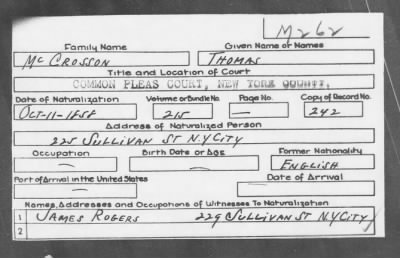 M262
Family Name Given Name or Names
McCrosson Thomas
Title and Location of Court
COMMON PLEAS COURT, NEW YORK COUNTY.
Date of Naturalization Volume or Bundle No. Page No. Copy of Record No.
Oct-11-1858 215 — 242
Address of Naturalized Person
225 Sullivan St N.Y City
Occupation Birth Date or Age Former Nationality
— — English
Port of Arrival in the United States Date of Arrival
— —
Names, Addresses and Occupations of Witnesses To Naturalization
1 James Rogers 229 Sullivan St N.Y City
2